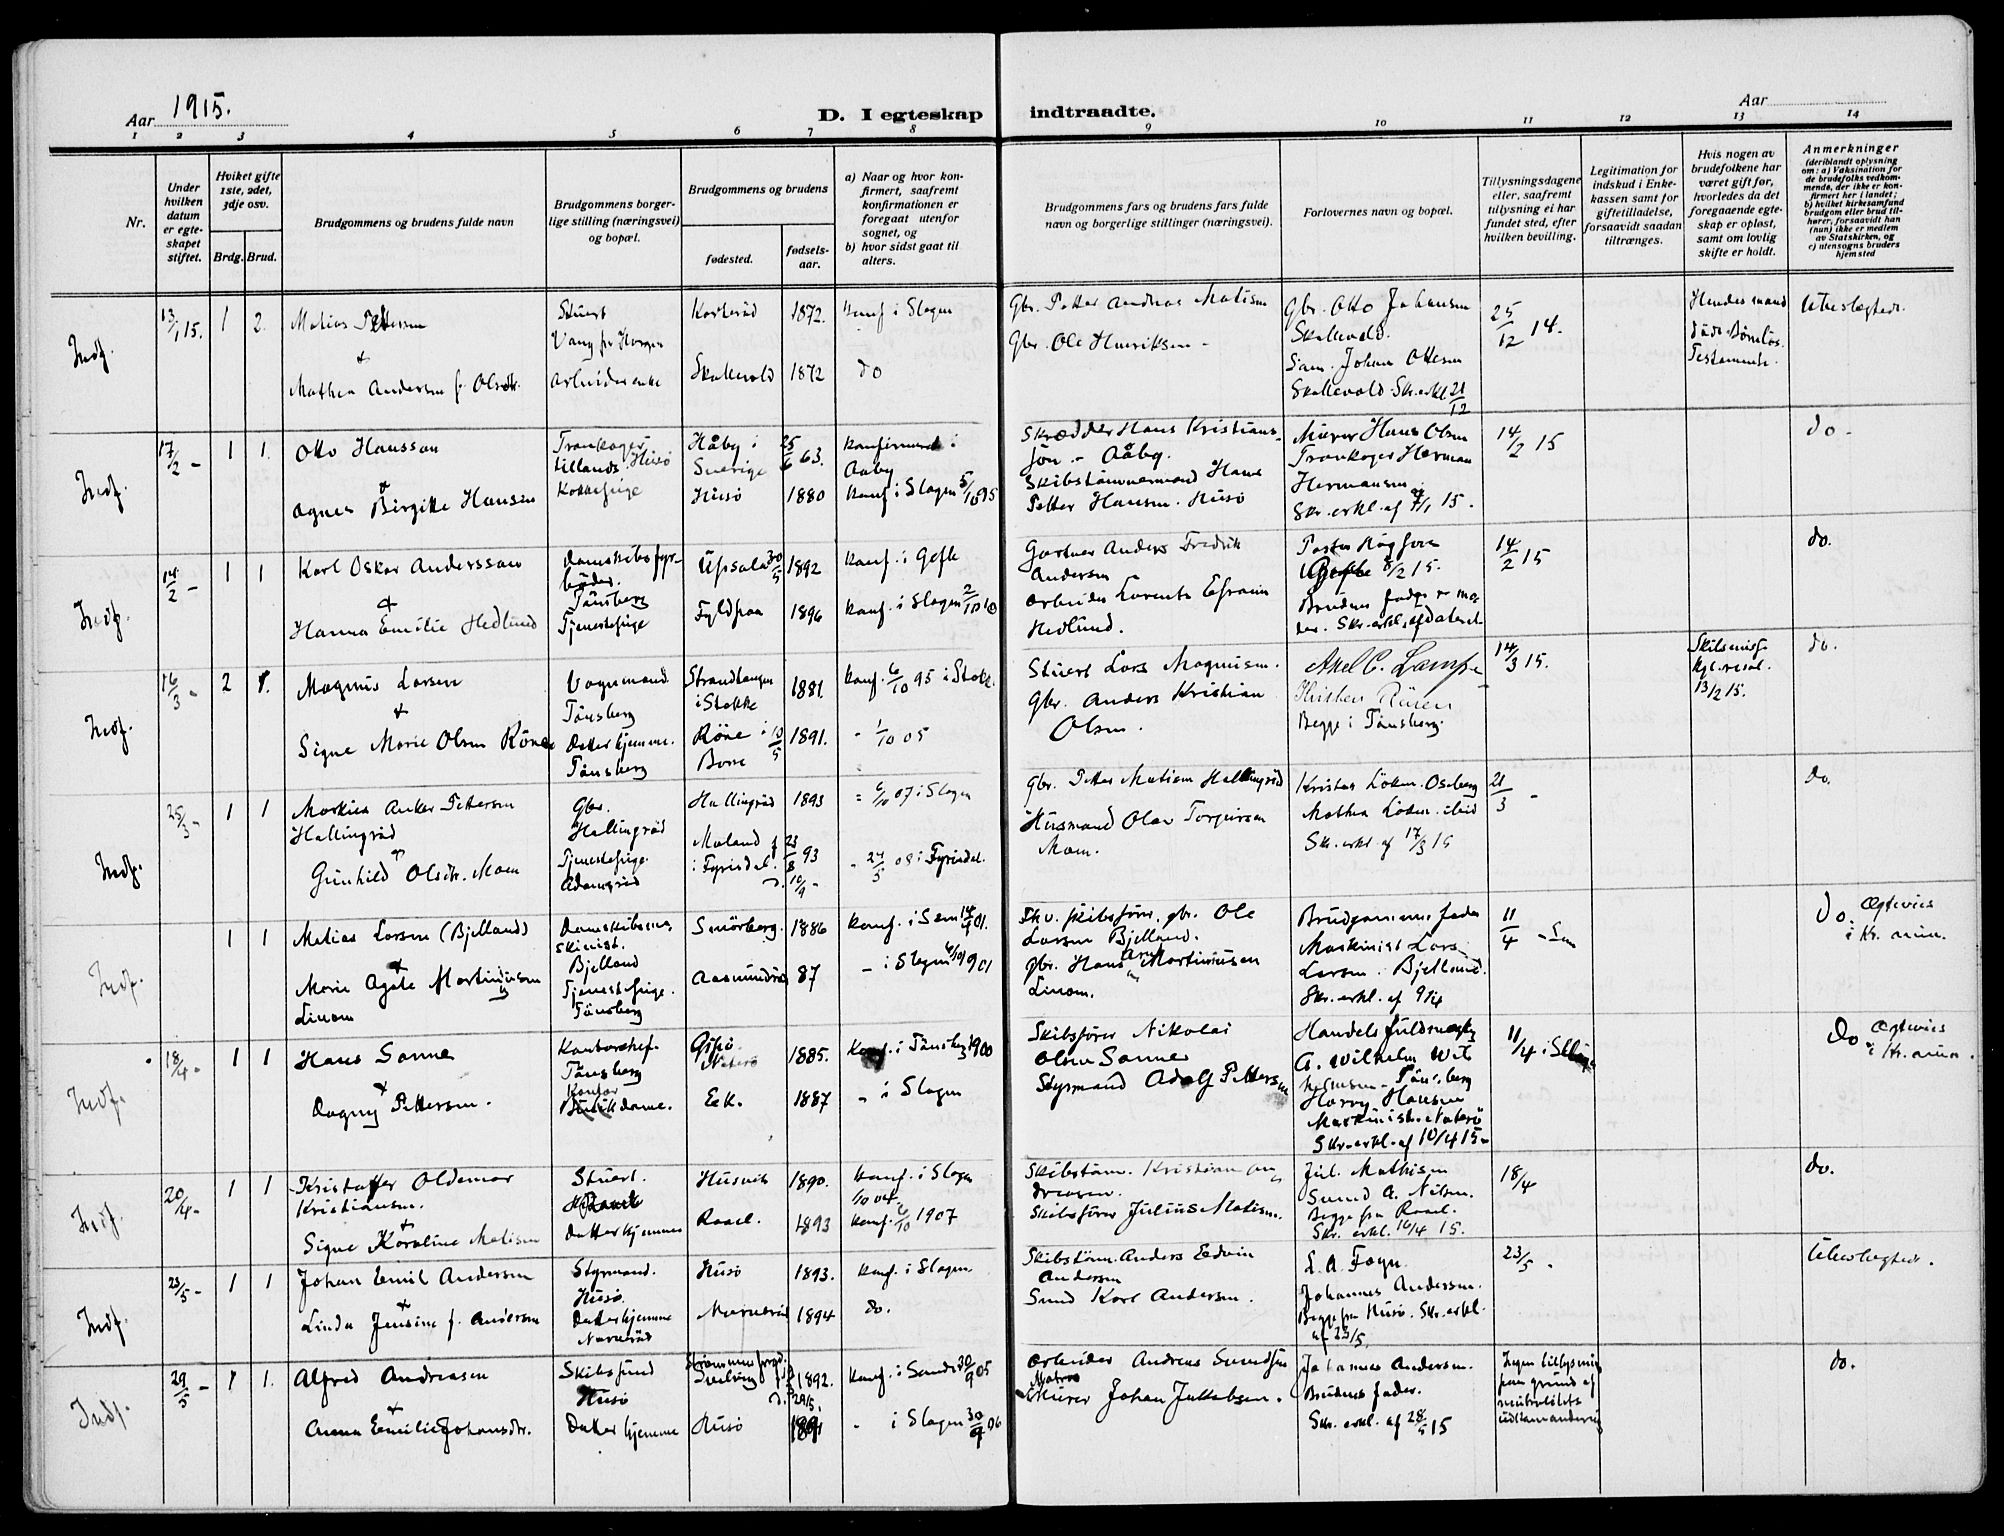 Aar 1915.
D. I egteskap indtraadte.
Aar
1 2 3 4 5 6 7 8 9 10 11 12 13 14
Nr.
Under hvilken datum er egte-skapet stiftet.
Hviket gifte 1ste, 2det, 3dje osv.
Brdg. Brud.
Brudgommens og brudens fulde navn
Brudgommens borger-lige stilling (næringsvei) og bopæl.
Brudgommens og brudens
fødested.
fødsels-aar.
a) Naar og hvor kon-firmert, saafremt konfirmationen er foregaat utenfor sognet, og
b) hvor sidst gaat til alters.
Brudgommens fars og brudens fars fulde navn og borgerlige stillinger (næringsvei).
Forlovernes navn og bopæl.
Tillysningsdagene eller, saafremt tillysning ei har fundet sted, efter hvilken bevilling.
Legitimation for indskud i Enke-kassen samt for giftetilladelse, forsaavidt saadan tiltrænges.
Hvis nogen av brudefolkene har været gift før, hvorledes da det foregaaende egte-skap er opløst, samt om lovlig skifte er holdt.
Anmerkninger
(deriblandt oplysning om: a) Vaksination for de brudefolks vedkom-mende, der ikke er kon-firmert her i landet; b) hvilket kirkesamfund brudgom eller brud til-hører, forsaavidt han (hun) ikke er medlem av Statskirken, og c) utensogns bruders hjemsted
Indf.
13/1 15. 1 2.
Matias Pettersen
&
Mathea Andersen f. Olsdtr.
Stuert
Vang pr Horgen
Arbeiderenke
1872.
Skallevold 1872
Konf. i Slagen
do
Gbr. Petter Andreas Matisen
Gbr. Ole Henriksen -
Gbr. Otto Johansen
Skallevold.
Sam. Johan Ottesen
Skallevold. Skr. erkl 21/12
25/12 14.
Hendes mand
døde. Barnløs.
Testamente.
Ubeslegtede.
Indf.
17/2 - 1 1.
Otto Hansson
&
Agnes Birgitte Hansen
Trankoger
Husø
Kokkepige
Håby i
Sverige
25/6 63.
Husø 1880
Konfirmert i
Aaby
Konf. i Slagen 5/10 95
Skrædder Hans Kristians-
son - Aåby.
Skibstømmermand Hans
Petter Hansen. Husø
Murer Hans Olsen
Trankoger Herman
Hermansen
Skr. erkl. af 7/1 15.
14/2 15
do -
Indf.
14/2 - 1 1
Karl Oskar Anderssen
&
Hanna Emilie Hedlund
Damskibsfyr-
bøder.
Tønsberg
Tjenestepige
Upsala 30/5 1892
Fyldpaa 1896
Konf. i Gefle
Konf. i Slagen 2/10 10
Gartner Anders Fredrik
Andersen
Arbeider Lorents Efraim
Hedlund.
Pastor
Gefle 8/2 15.
Brudens fader er
Skr. erkl. udateret
14/2 15
do.
Indf.
16/3 - 2 1.
Magnus Larsen
&
Signe Marie Olsen Röne
Vognmand
Tønsberg
Datter hjemme.
Tønsberg
i Stokke 1881.
Röne i
Borre
10/5 1891.
Konf. 6/10 95 i Stokke
- 1/10 05
Stuert Lars Magnusen.
gbr. Anders Kristian
Olsen.
Axel C. Lampe
Kristen Rönen
Begge i Tönsberg.
14/3 15.
Skilsmisse
Kgl. resol.
13/2 15.
do.
Indf.
25/3 - 1 1
Markus Anker Pettersen
Hallingrød
&
Gunhild Olsdtr. Moen
Gbr.
Hallingrød
Tjenestepige.
Adamsrød
Hallingrød 1893
Moland
i Fyrisdal.
f 23/8 93
d. 10/9 -
= 6/10 07 i Slagen
- 24/5 08 i Fyrisdal.
Gbr. Petter Matisen Hallingrød
Husmand Olav Torgersen
Moen.
Kristen Löken. Oseberg
Mathea Löken. ibid
Skr. erkl af 17/3 15
21/3 -
do.
Indf.
1 1
Matias Larsen (Bjelland)
&
Marie Agate Martiniusen
Linom
Damskibsma-
skinist.
Bjelland
Tjenestepige.
Tönsberg
Smörberg. 1886
Aasmundrød 87
Konf. i Sem 14/4 01.
- i Slagen 6/10 1901
Fhv. skibsfører, gbr. Ole
Larsen Bjelland.
gbr. Hans Martiniusen
Linom.
Brudgommens fader
Maskinist Lars
Larsen. Bjelland.
Skr. erkl. af 9/4
11/4 - Sem
do. Egtevies
i Kr. ania.
Indf.
18/4 - 1 1
Hans Sanne
&
Dagny Pettersen.
Kontorchef.
Tönsberg
Kontor
dame.
Nøterø 1885.
Eek. 1887
Konf. i Tönsberg 1900
- i Slagen
Skibsfører Nikolai
Olsen Sanne
Styrmand Adolf Pettersen
Handelsfuldmegtig
A. Wilhelm Wil
helmsen - Tönsberg
Harry Hansen
Maskinist. Nøterø
Skr. erkl. af 10/4 15 -
11/4 i Slagen
do Egtevies
i Kr. ania.
Indf.
20/4 - 1 1
Kristoffer Oldemar
Kristiansen.
&
Signe Karoline Matisen
Stuert.
Datter hjemme
Husvik 1890.
Raael. 1893
Konf. i Slagen
1/10 04.
Konf. 6/10 1907
Skibstøm. Kristian An
dreasen.
Skibsfører Julius Matisen.
Jul. Mathisen
Svend A. Nilsen.
Begge fra Raael.
Skr. erkl. 16/4 15.
18/4
do.
Indf.
23/5 - 1 1
Johan Emil Andersen
&
Linda Jensine f. Andersen
Styrmand.
Husø.
Datter hjemme
Narverød
Husø 1893.
Narverød 1894
Konf. i Slagen
do.
Skibstøm. Anders Edvin
Andersen
Svend Karl Andersen.
L. A. Fogn.
Johannes Andersen.
Begge fra Husø. Skr. erkl.
af 23/5.
23/5 -
Ubeslegtede.
Indf.
29/5 - 1 1.
Alfred Andreasen
&
Anna Emilie Johansdtr.
Husø
Datter hjemme
Svelvig 1892.
Husø 1891
Konf. i Sande 30/9 05
- i Slagen 30/9 06
Arbeider Andreas Svendsen
Murer Johan Jakobsen.
Johannes Andersen.
Brudens fader.
Skr. erkl. af 28/5 15
Ingen tillysning
paa grund af
neutralitets
do.